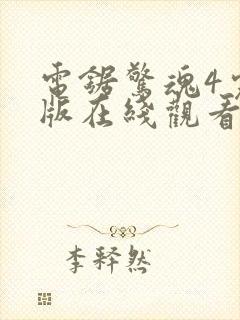 電鋸驚魂4完
版在綫觀看
李釋然